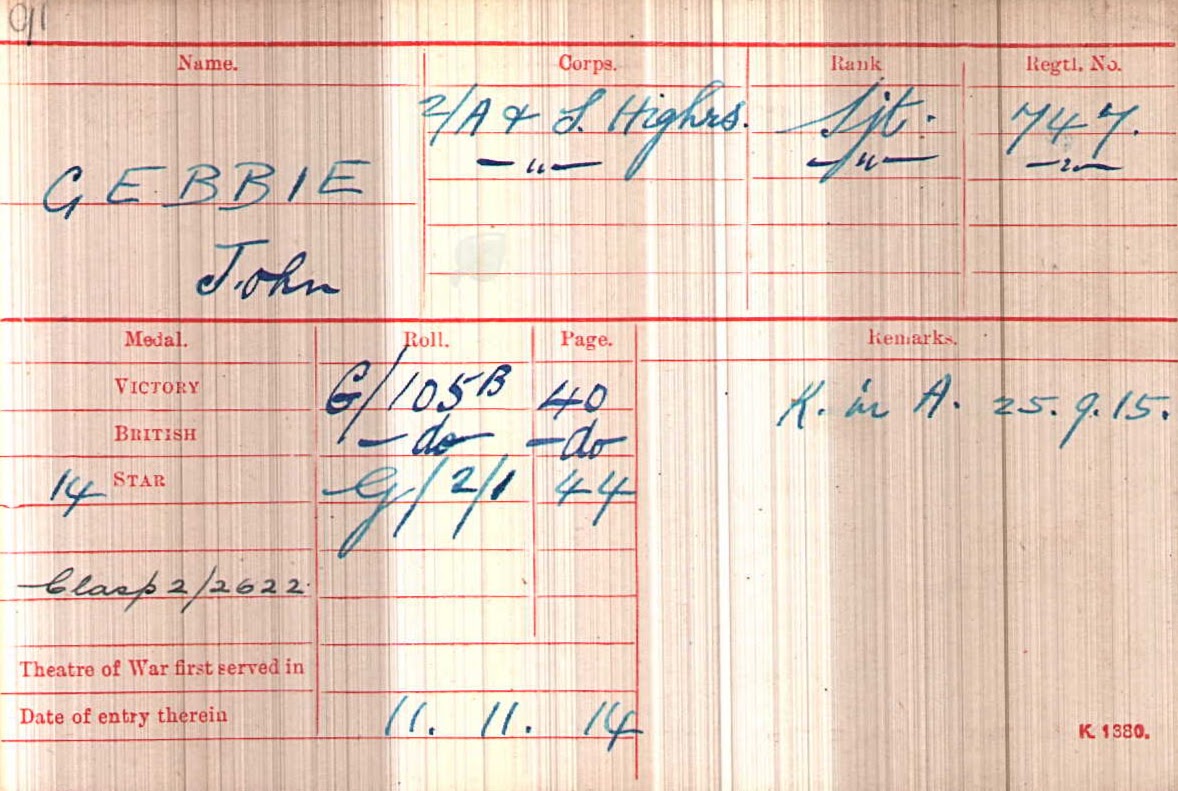 Name. Corps. Rank Regtl. No.
2/A & S. Highrs. Sjt. 747.
— " — — " — — " —
GEBBIE
John
Medal. Roll. Page. Remarks.
VICTORY G/105B 40 K. in A. 25.9.15.
BRITISH — do — — do
14 STAR G/2/1 44
Clasp 2/2622
Theatre of War first served in
Date of entry therein 11. 11. 14
K 1380.